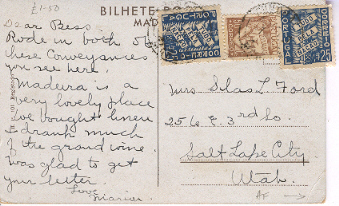 £1.50
BILHETE
MAD
Dear Bess
Rode in both of
these Conveyances
you see here.
Madeira is a
very lovely place
we bought linen
& drank much
of the grand wine.
was glad to get
your letter.
Love
Mrs Silas L. Ford
256 E 3rd So.
Salt Lake City
Utah.